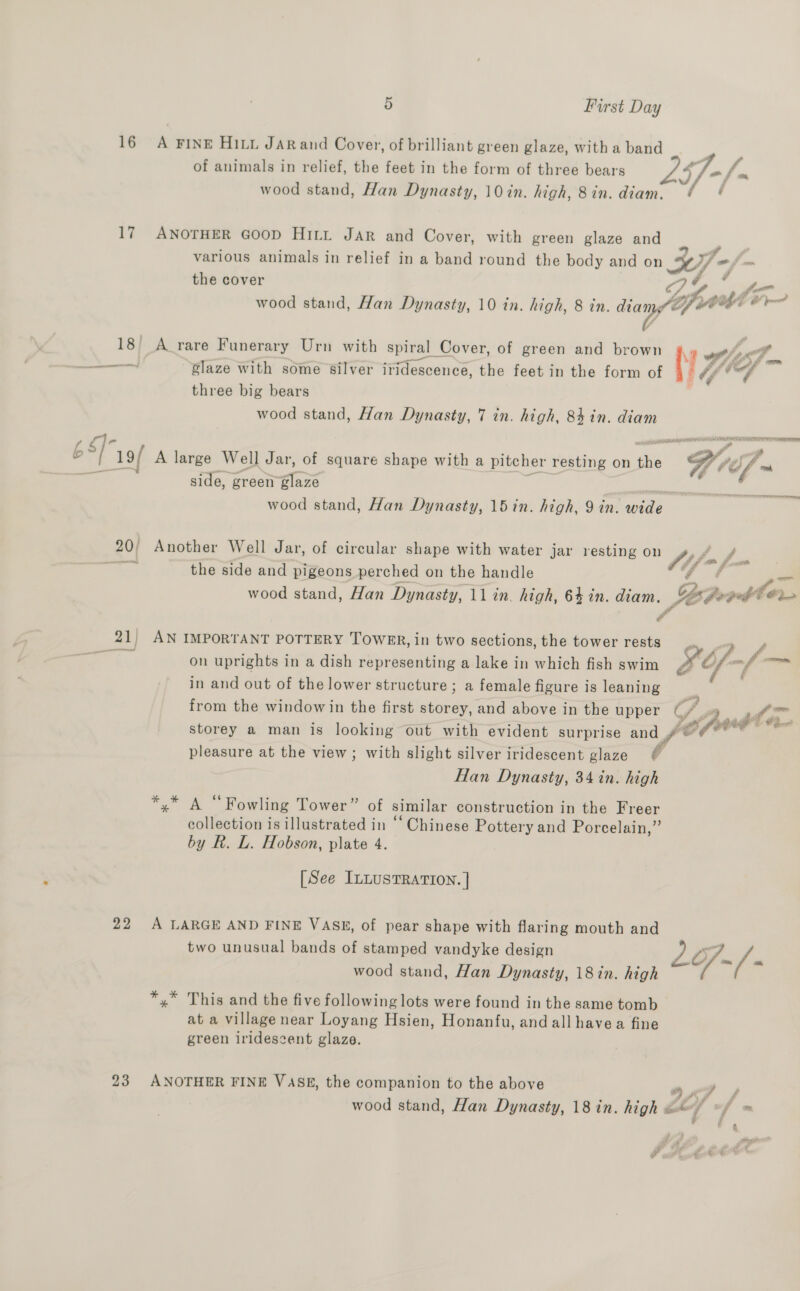 5 First Day
16 A FINE HILL JAR and Cover, of brilliant green glaze, with a band
of animals in relief, the feet in the form of three bears
wood stand, Han Dynasty, 10 in. high, 8 in. diam.
17 ANOTHER GOOD HILL JAR and Cover, with green glaze and
various animals in relief in a band round the body and on
the cover
wood stand, Han Dynasty, 10 in. high, 8 in. diam.
18 A rare Funerary Urn with spiral Cover, of green and brown
glaze with some silver iridescence, the feet in the form of
three big bears
wood stand, Han Dynasty, 7 in. high, 8½ in. diam
19 A large Well Jar, of square shape with a pitcher resting on the
side, green glaze
wood stand, Han Dynasty, 15 in. high, 9 in. wide
20 Another Well Jar, of circular shape with water jar resting on
the side and pigeons perched on the handle
wood stand, Han Dynasty, 11 in. high, 6½ in. diam.
21 AN IMPORTANT POTTERY TOWER, in two sections, the tower rests
on uprights in a dish representing a lake in which fish swim
in and out of the lower structure; a female figure is leaning
from the window in the first storey, and above in the upper
storey a man is looking out with evident surprise and
pleasure at the view; with slight silver iridescent glaze
Han Dynasty, 34 in. high
*⁎* A "Fowling Tower" of similar construction in the Freer
collection is illustrated in "Chinese Pottery and Porcelain,"
by R. L. Hobson, plate 4.
[See ILLUSTRATION.]
22 A LARGE AND FINE VASE, of pear shape with flaring mouth and
two unusual bands of stamped vandyke design
wood stand, Han Dynasty, 18 in. high
*⁎* This and the five following lots were found in the same tomb
at a village near Loyang Hsien, Honanfu, and all have a fine
green iridescent glaze.
23 ANOTHER FINE VASE, the companion to the above
wood stand, Han Dynasty, 18 in. high